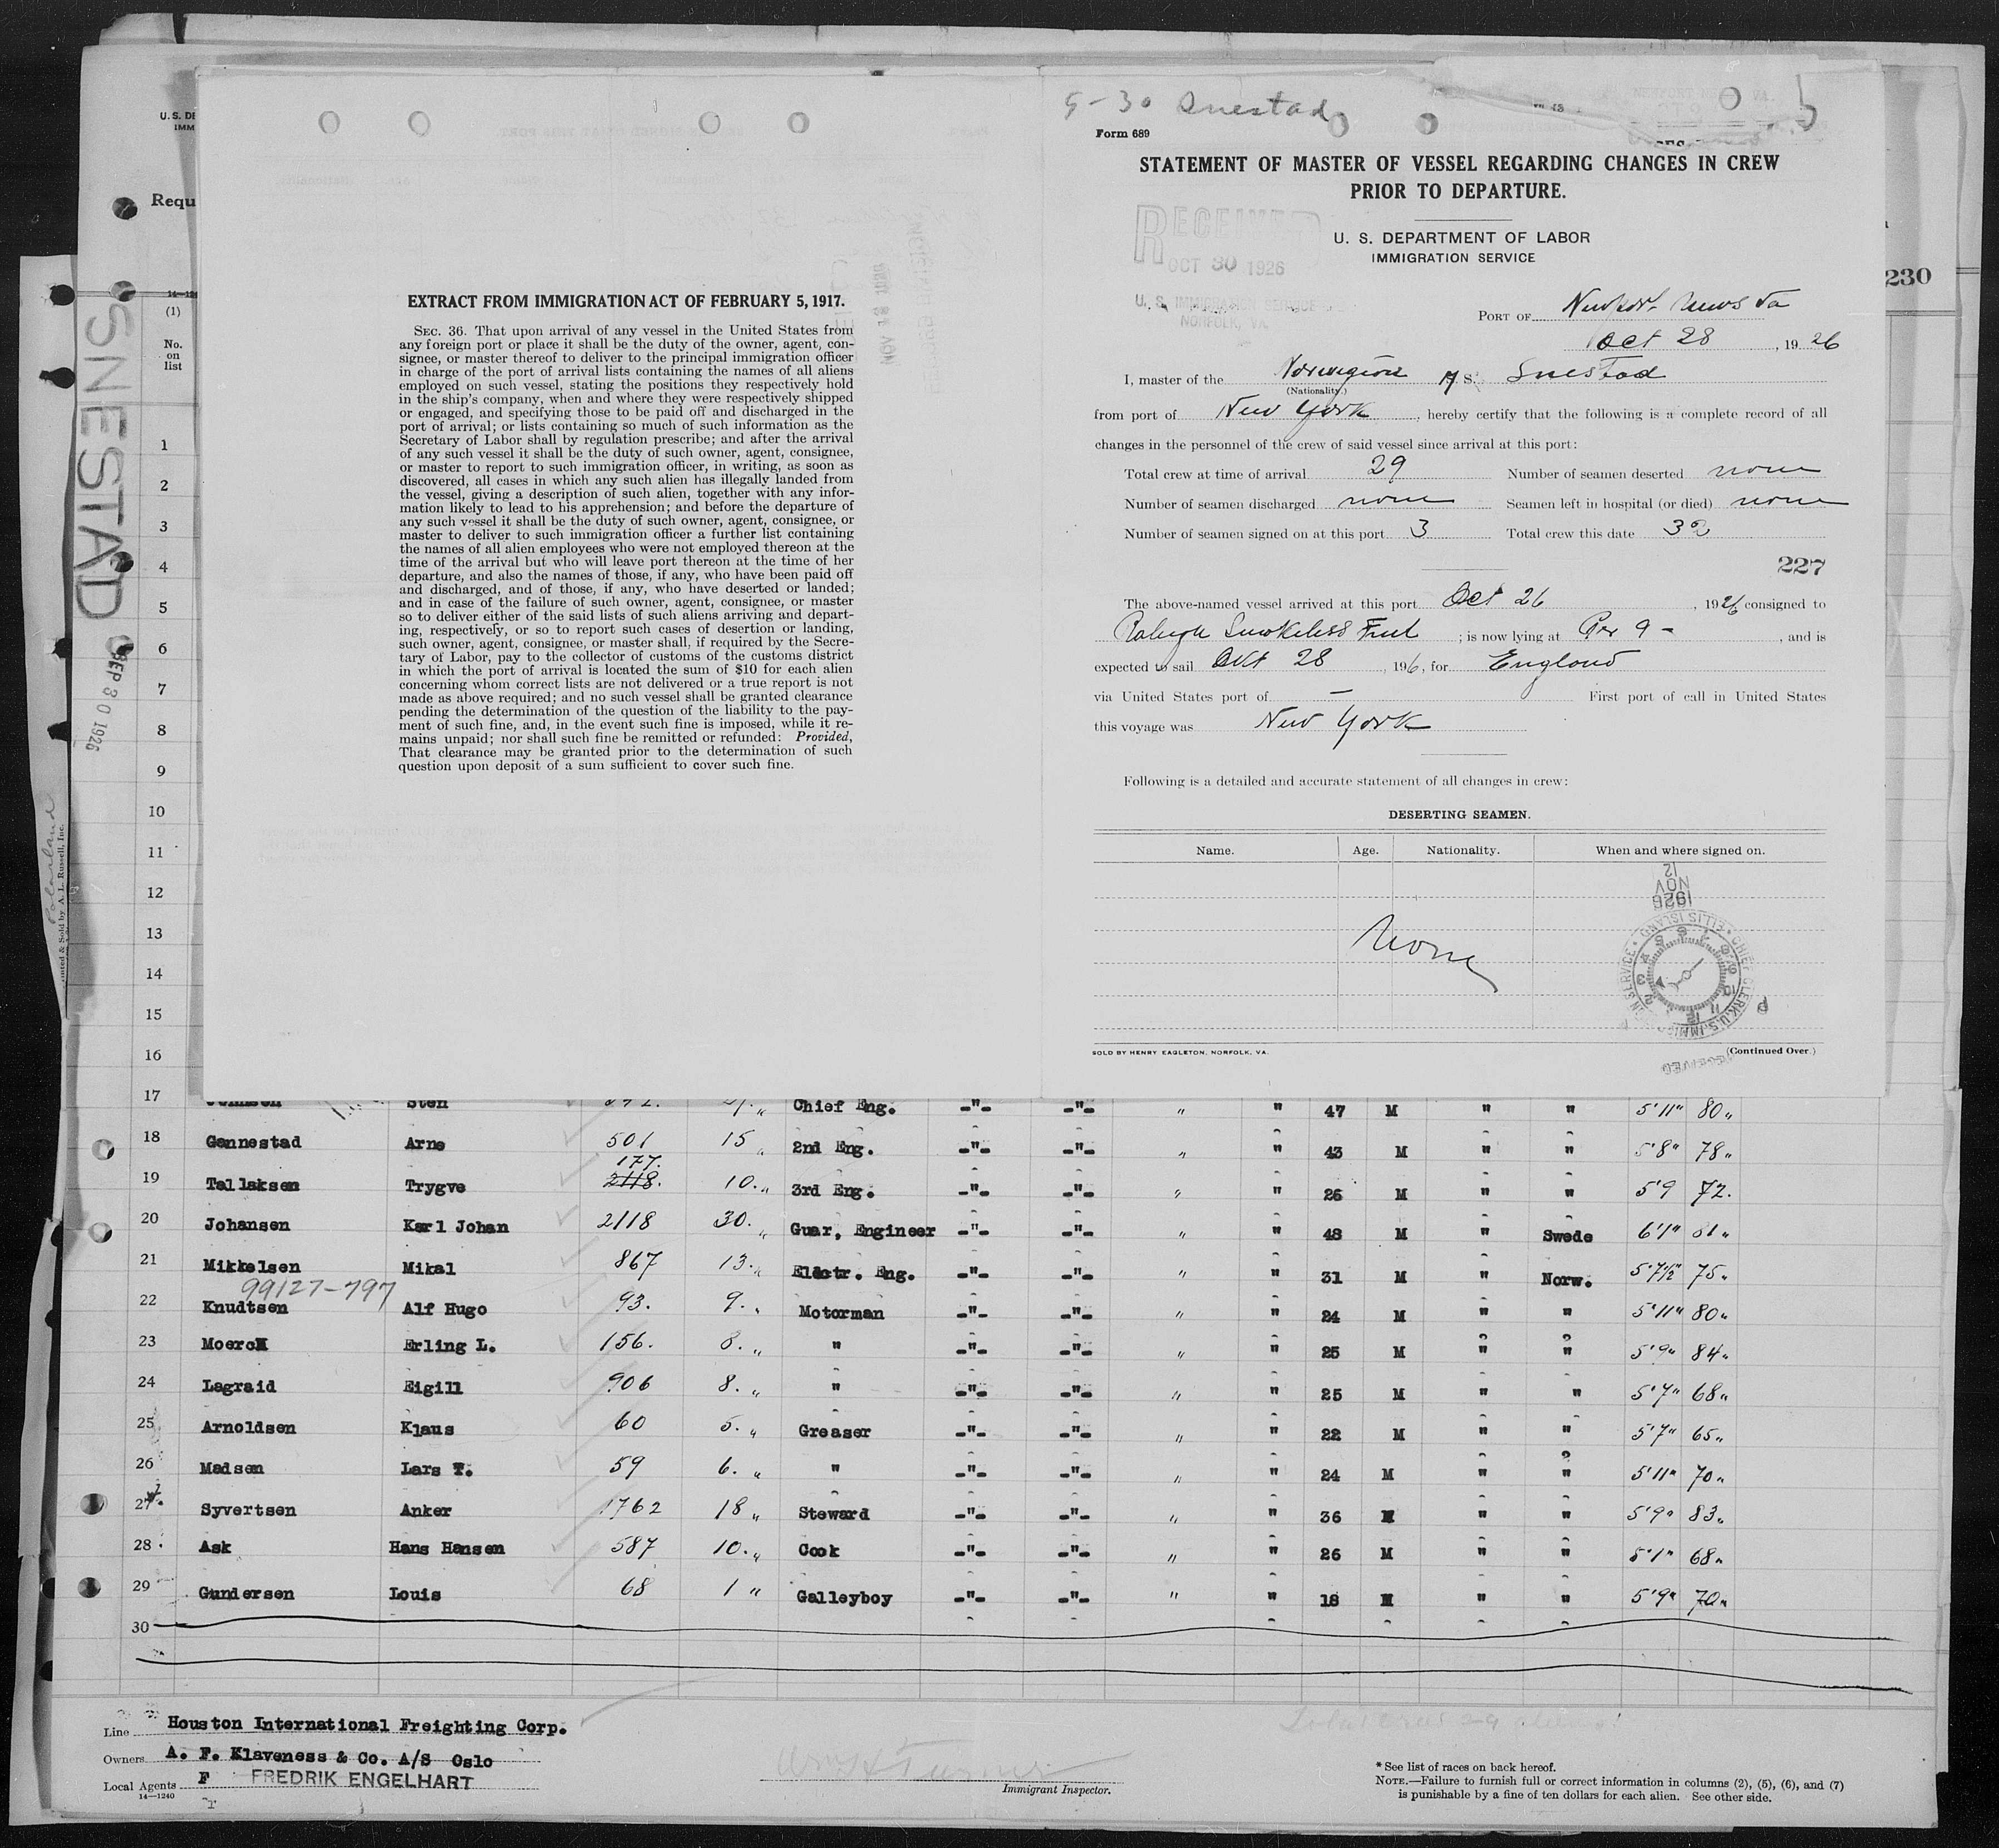 U. S. DE
IMM
Requ
14—12
(1)
No.
on
list
SNESTAD
SEP 30 1926
230
1
2
3
4
5
6
7
8
9
10
11
12
13
14
15
16
EXTRACT FROM IMMIGRATION ACT OF FEBRUARY 5, 1917.
SEC. 36. That upon arrival of any vessel in the United States from
any foreign port or place it shall be the duty of the owner, agent, con-
signee, or master thereof to deliver to the principal immigration officer
in charge of the port of arrival lists containing the names of all aliens
employed on such vessel, stating the positions they respectively hold
in the ship's company, when and where they were respectively shipped
or engaged, and specifying those to be paid off and discharged in the
port of arrival; or lists containing so much of such information as the
Secretary of Labor shall by regulation prescribe; and after the arrival
of any such vessel it shall be the duty of such owner, agent, consignee,
or master to report to such immigration officer, in writing, as soon as
discovered, all cases in which any such alien has illegally landed from
the vessel, giving a description of such alien, together with any infor-
mation likely to lead to his apprehension; and before the departure of
any such vessel it shall be the duty of such owner, agent, consignee, or
master to deliver to such immigration officer a further list containing
the names of all alien employees who were not employed thereon at the
time of the arrival but who will leave port thereon at the time of her
departure, and also the names of those, if any, who have been paid off
and discharged, and of those, if any, who have deserted or landed;
and in case of the failure of such owner, agent, consignee, or master
so to deliver either of the said lists of such aliens arriving and depart-
ing, respectively, or so to report such cases of desertion or landing,
such owner, agent, consignee, or master shall, if required by the Secre-
tary of Labor, pay to the collector of customs of the customs district
in which the port of arrival is located the sum of $10 for each alien
concerning whom correct lists are not delivered or a true report is not
made as above required; and no such vessel shall be granted clearance
pending the determination of the question of the liability to the pay-
ment of such fine, and, in the event such fine is imposed, while it re-
mains unpaid; nor shall such fine be remitted or refunded: Provided,
That clearance may be granted prior to the determination of such
question upon deposit of a sum sufficient to cover such fine.
9-30 Snestad
Form 689
STATEMENT OF MASTER OF VESSEL REGARDING CHANGES IN CREW
PRIOR TO DEPARTURE.
RECEIVED
OCT 30 1926
U. S. IMMIGRATION SERVICE
NORFOLK, VA.
U. S. DEPARTMENT OF LABOR
IMMIGRATION SERVICE
PORT OF Newport News Va
Oct 28, 1926
I, master of the Norwegian M S. Snestad
(Nationality.)
from port of New York, hereby certify that the following is a complete record of all
changes in the personnel of the crew of said vessel since arrival at this port:
Total crew at time of arrival 29 Number of seamen deserted none
Number of seamen discharged none Seamen left in hospital (or died) none
Number of seamen signed on at this port 3 Total crew this date 32
227
The above-named vessel arrived at this port Oct 26, 1926 consigned to
Raleigh Smokeless Fuel; is now lying at Pier 9 -, and is
expected to sail Oct 28, 196, for England
via United States port of — First port of call in United States
this voyage was New York
Following is a detailed and accurate statement of all changes in crew:
DESERTING SEAMEN.
Name. Age. Nationality. When and where signed on.
None
12 NOV 1926
CHIEF CLERK, U.S. IMMIGRATION SERVICE ELLIS ISLAND
RECEIVED
SOLD BY HENRY EAGLETON, NORFOLK, VA. (Continued Over.)
17 Johnsen Sten Chief Eng. -"- -"- " " 47 M " " 5'11" 80"
18 Gennestad Arne 501 15 " 2nd Eng. -"- -"- " " 43 M " " 5'8" 78"
177.
19 Tallaksen Trygve 2118. 10. " 3rd Eng. -"- -"- " " 26 M " " 5'9 72.
20 Johansen Karl Johan 2118 30. " Guar, Engineer -"- -"- " " 48 M " Swede 6'1" 81"
21 Mikkelsen Mikal 867 13. " Electr. Eng. -"- -"- " " 31 M " Norw. 5'7½" 75"
99127-797
22 Knudtsen Alf Hugo 93. 9. " Motorman -"- -"- " " 24 M " " 5'11" 80"
23 Moerch Erling L. 156. 8. " " -"- -"- " " 25 M " " 5'9" 84"
24 Legraid Eigill 906 8. " " -"- -"- " " 25 M " " 5'7" 68"
25 Arnoldsen Klaus 60 5. " Greaser -"- -"- " " 22 M " " 5'7" 65"
26 Madsen Lars T. 59 6. " " -"- -"- " " 24 M " " 5'11" 70"
27 Syvertsen Anker 1762 18 " Steward -"- -"- " " 36 M " " 5'9" 83"
28 Ask Hans Hansen 587 10. " Cook -"- -"- " " 26 M " " 5'1" 68"
29 Gundersen Louis 68 1 " Galleyboy -"- -"- " " 18 M " " 5'9" 70"
30
Line Houston International Freighting Corp.
Owners A. F. Klaveness & Co. A/S Oslo
Local Agents F FREDRIK ENGELHART
14—1240
Immigrant Inspector.
* See list of races on back hereof.
NOTE.—Failure to furnish full or correct information in columns (2), (5), (6), and (7)
is punishable by a fine of ten dollars for each alien. See other side.